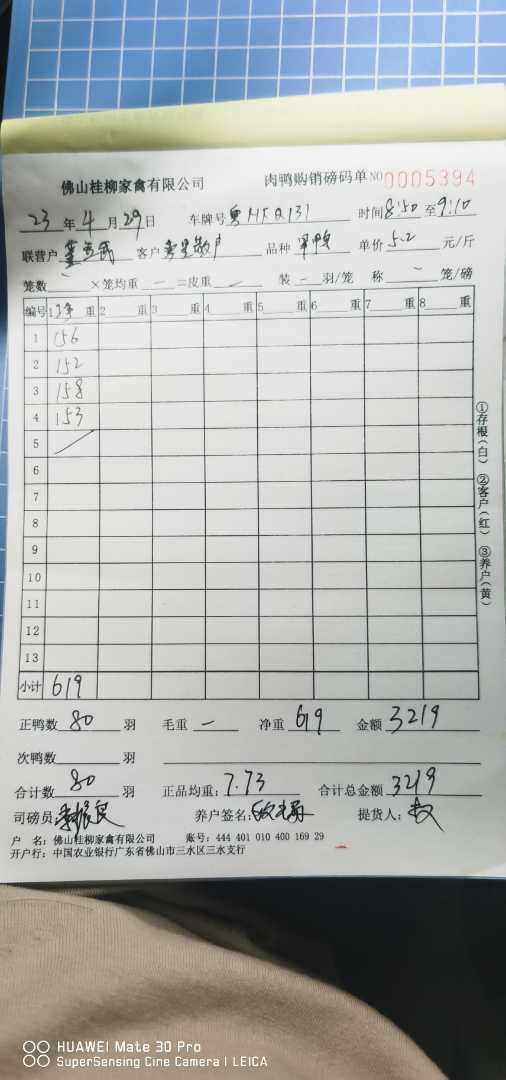 佛山桂柳家禽有限公司 肉鸭购销磅码单 NO 0005394
23 年 4 月 29 日 车牌号 粤 时间 8:50 至 9:10
联营户 客户 品种 单价 5.2 元/斤
笼数 ×笼均重 一 =皮重 装 一 羽/笼 称 一 笼/磅
编号 1 净 重 2 重 3 重 4 重 5 重 6 重 7 重 8 重
1 156
2 152
3 158
4 153
5
6
7
8
9
10
11
12
13
小计 619
正鸭数 80 羽 毛重 一 净重 619 金额 3219
次鸭数 羽
合计数 80 羽 正品均重: 7.73 合计总金额 3219
司磅员: 养户签名: 提货人:
户 名: 佛山桂柳家禽有限公司 账号: 444 401 010 400 169 29
开户行: 中国农业银行广东省佛山市三水区三水支行
①存根(白) ②客户(红) ③养户(黄)
HUAWEI Mate 30 Pro
SuperSensing Cine Camera | LEICA